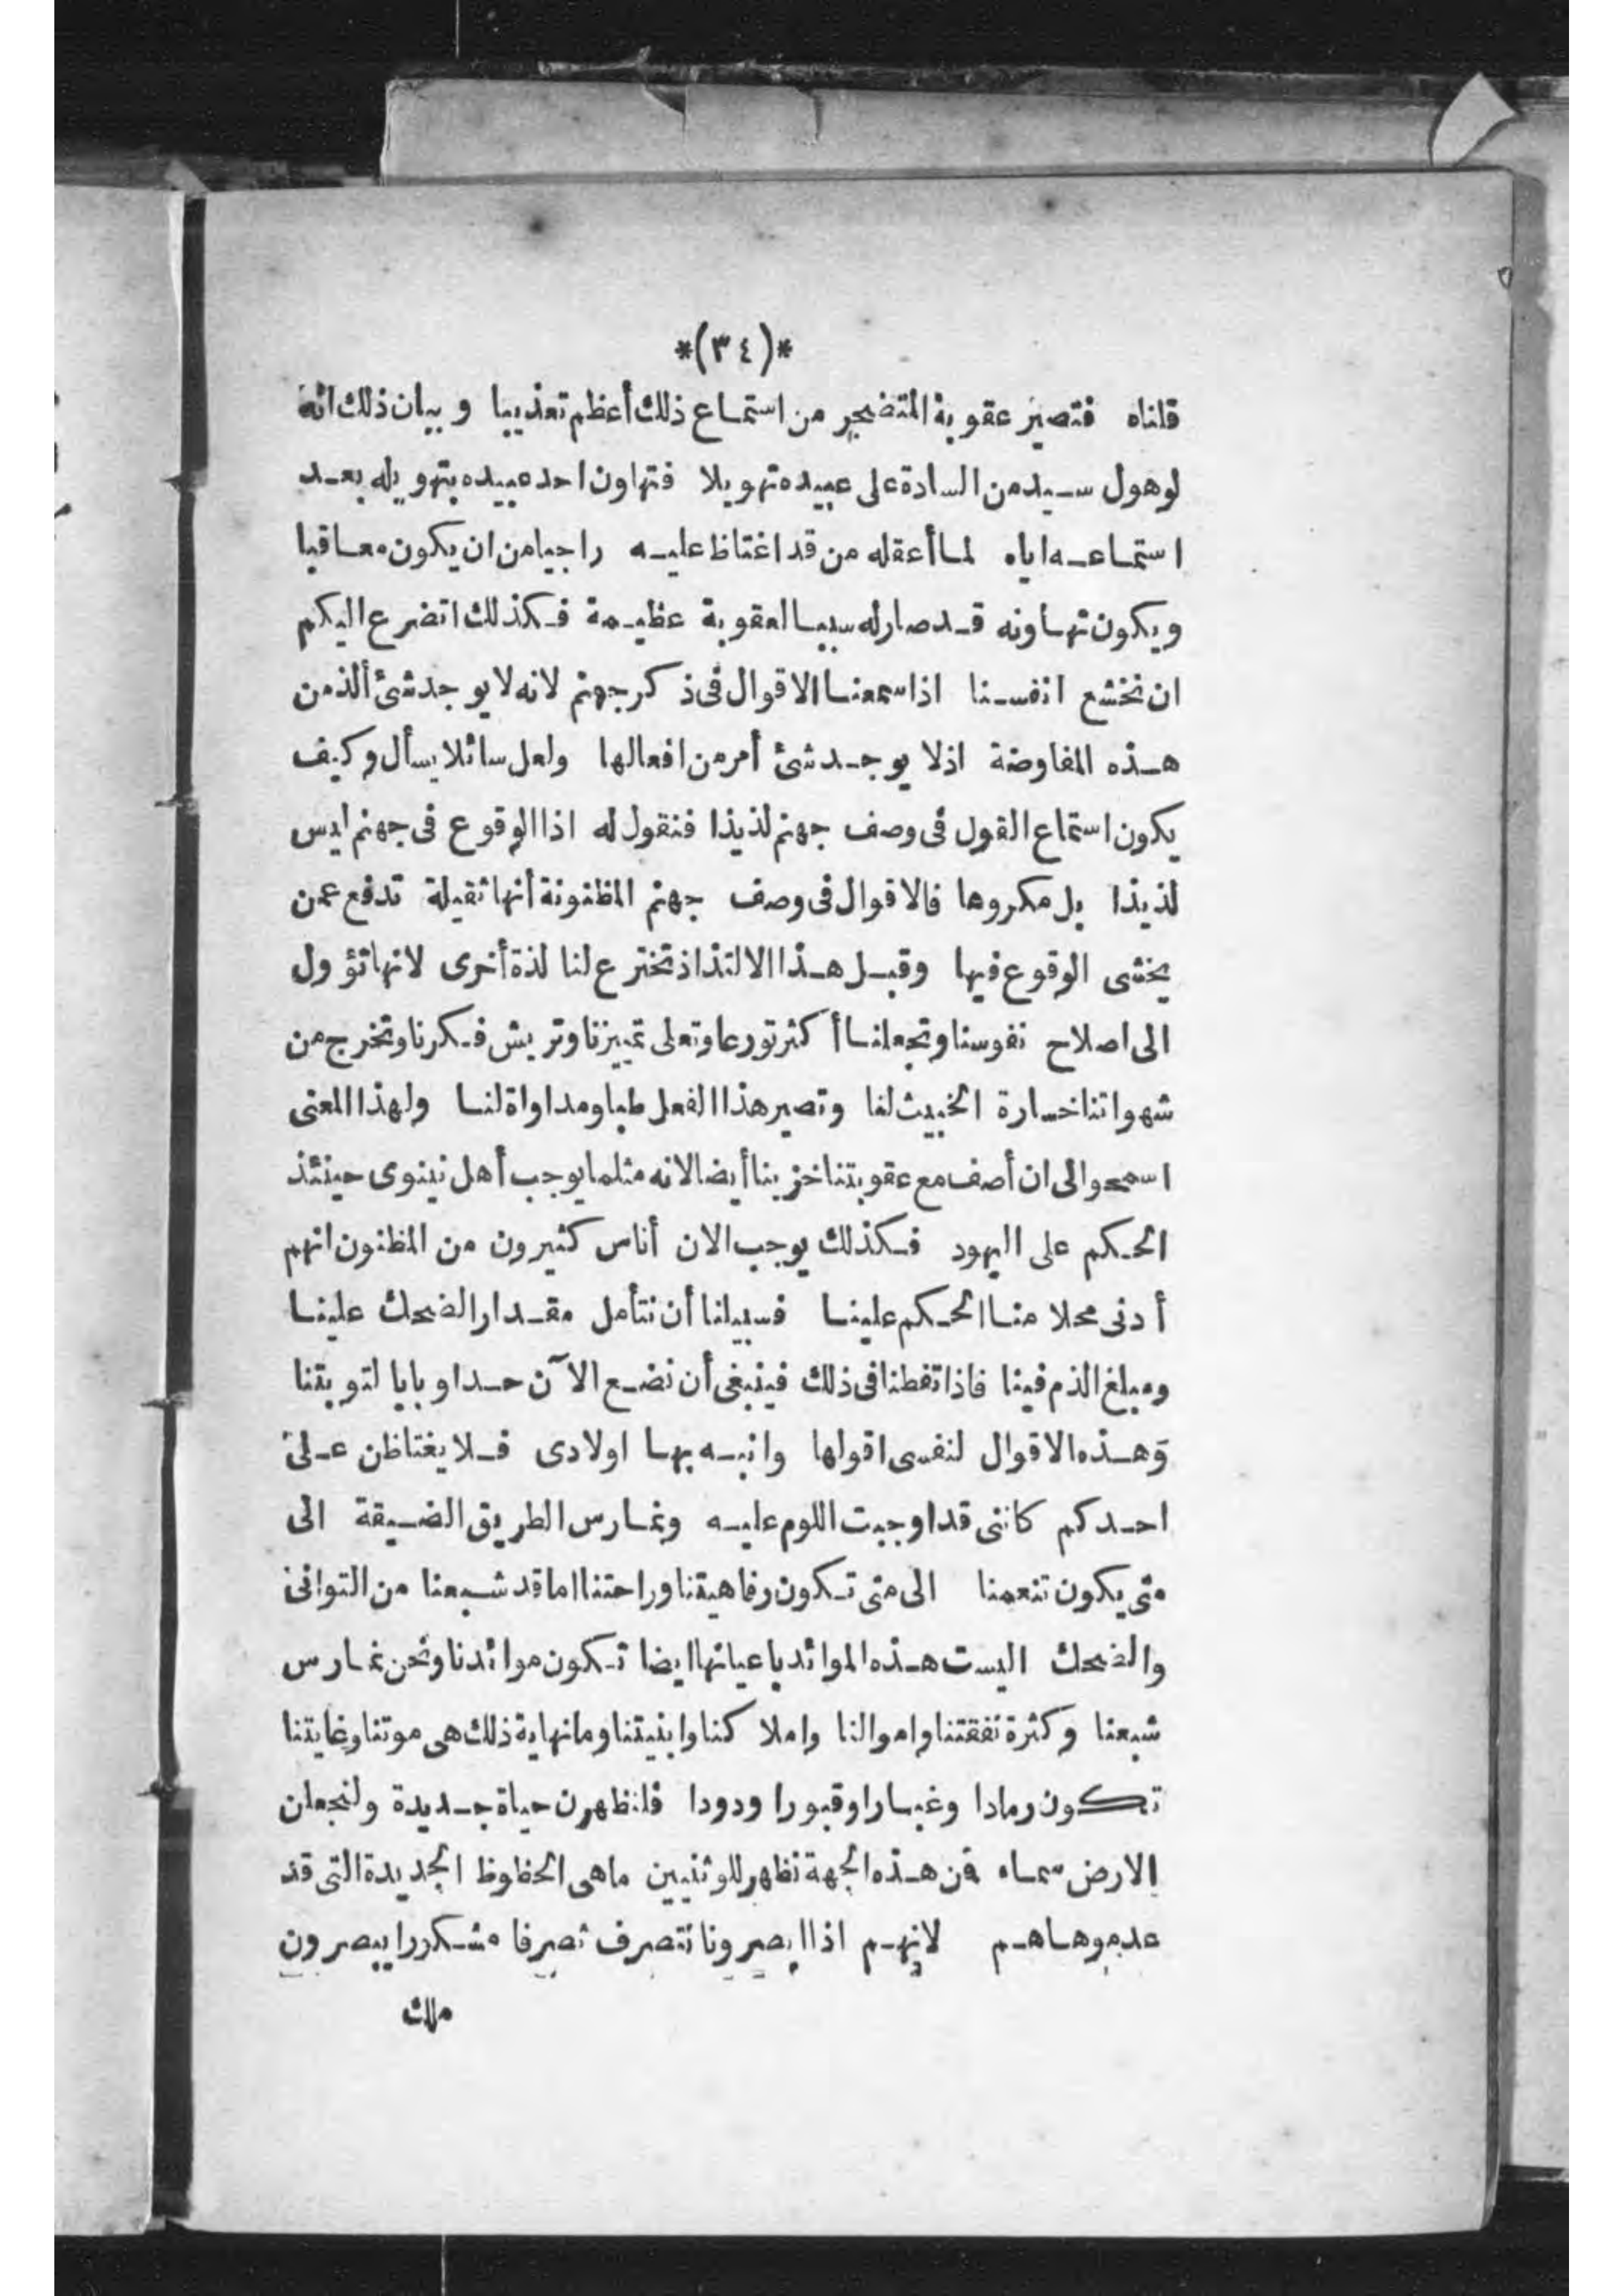 *(٣٤)*
قلناه فتصير عقوبة المتضجر من استماع ذلك أعظم تعذيبا وبيان ذلك انه
لو هول سيد من السادة على عبيده تهويلا فتهاون احد عبيده بتهويله بعد
استماعه اياه لما أعقله من قد اغتاظ عليه راجيا من ان يكون معاقبا
ويكون تهاونه قد صار له سببا لعقوبة عظيمة فكذلك اتضرع اليكم
ان نخشع انفسنا اذا سمعنا الاقوال فى ذكر جهنم لانه لا يوجد شئ ألذ من
هذه المفاوضة اذ لا يوجد شئ أمر من افعالها ولعل سائلا يسأل وكيف
يكون استماع القول فى وصف جهنم لذيذا فنقول له اذا الوقوع فى جهنم ليس
لذيذا بل مكروها فالاقوال فى وصف جهنم المظنونة أنها ثقيلة تدفع عمن
يخشى الوقوع فيها وقبل هذا الالتذاذ تخترع لنا لذة أخرى لانها تؤول
الى اصلاح نفوسنا وتجعلنا أكثر تورعا وتعلى تمييزنا وتريش فكرنا وتخرج من
شهواتنا خسارة الخبيث لنا وتصير هذا الفعل طبا ومداواة لنا ولهذا المعنى
اسمحوا لى ان أصف مع عقوبتنا خزينا أيضا لانه مثلما يوجب أهل نينوى حينئذ
الحكم على اليهود فكذلك يوجب الان أناس كثيرون من المظنون انهم
أدنى محلا منا الحكم علينا فسبيلنا أن نتأمل مقدار الضحك علينا
ومبلغ الذم فينا فاذا تفطنا فى ذلك فينبغى أن نضع الآن حدا وبابا لتوبتنا
وهذه الاقوال لنفسى اقولها وانبه بها اولادى فلا يغتاظن على
احدكم كاننى قد اوجبت اللوم عليه ونمارس الطريق الضيقة الى
متى يكون تنعمنا الى متى تكون رفاهيتنا وراحتنا اما قد شبعنا من التوانى
والضحك اليست هذه الموائد باعيانها ايضا تكون موائدنا ونحن نمارس
شبعنا وكثرة نفقتنا واموالنا واملاكنا وابنيتنا وما نهاية ذلك هى موتنا وغايتنا
تكون رمادا وغبارا وقبورا ودودا فلنظهرن حياة جديدة ولنجعلن
الارض سماء فمن هذه الجهة نظهر للوثنيين ما هى الحظوظ الجديدة التى قد
عدموها هم لانهم اذا ابصرونا نتصرف تصرفا مشكررا يبصرون
ملك